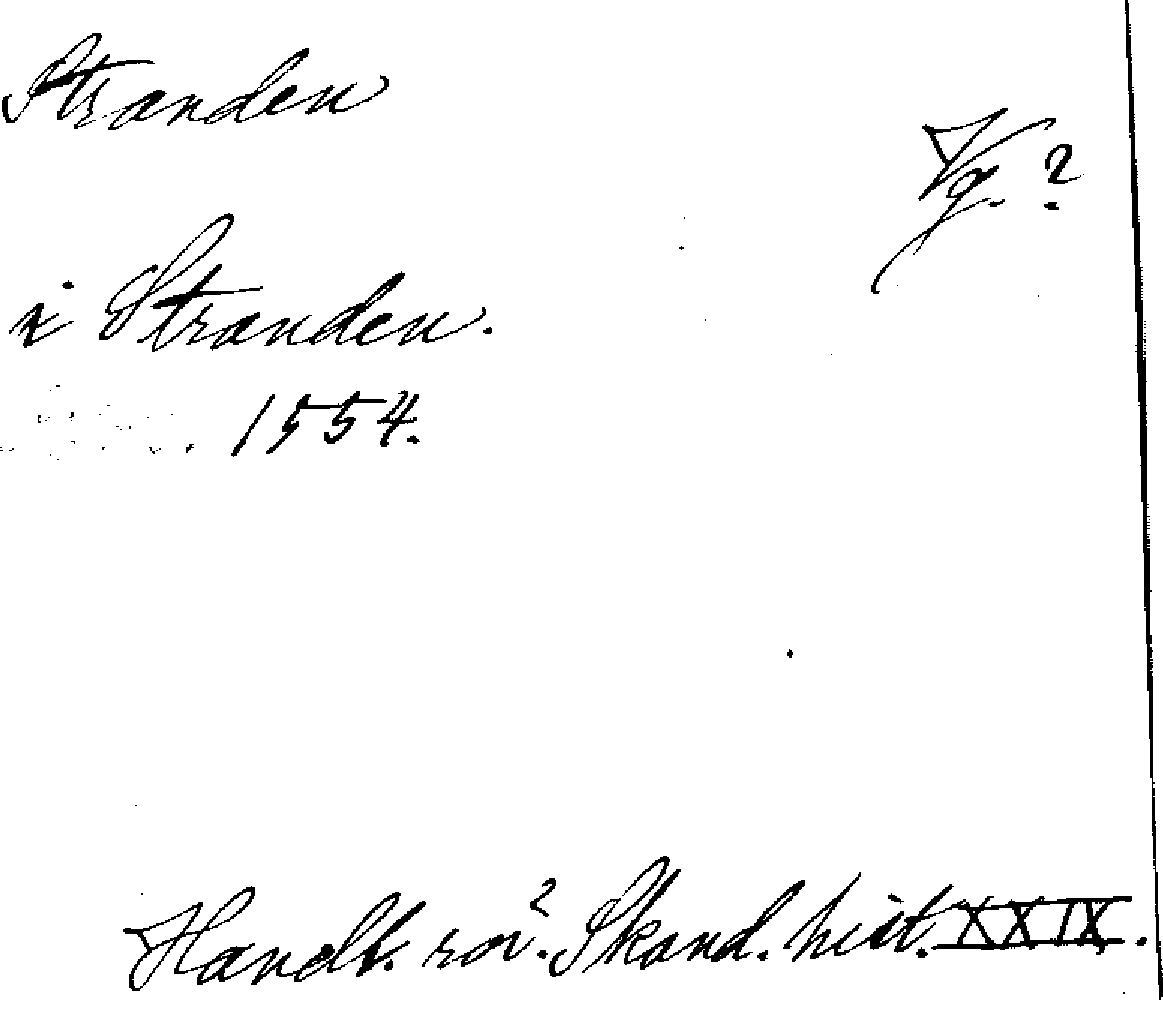 Stranden
Vg. ?
i Stranden.
1554.
Handl. rör. Skand. hist. XXIX.